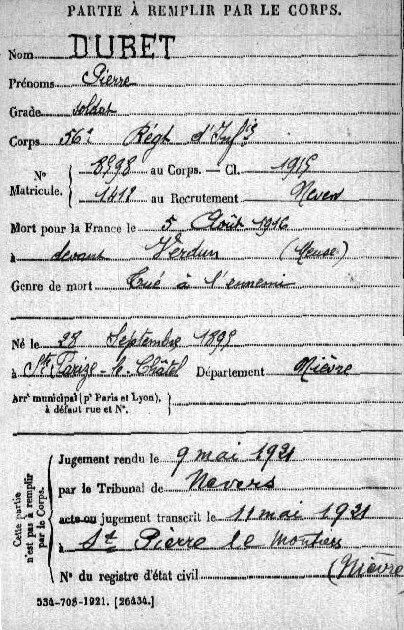 PARTIE À REMPLIR PAR LE CORPS.
Nom DURET
Prénoms Pierre
Grade soldat
Corps 56e Régt d'Infie
No Matricule. 8598 au Corps. — Cl. 1915
1418 au Recrutement Nevers
Mort pour la France le 5 Août 1916
à devant Verdun (Meuse)
Genre de mort Tué à l'ennemi
Né le 28 Septembre 1895
à St Parize-le-Châtel Département Nièvre
Arrt municipal (pr Paris et Lyon), à défaut rue et No.
Cette partie n'est pas à remplir par le Corps.
Jugement rendu le 9 mai 1921
par le Tribunal de Nevers
acte ou jugement transcrit le 11 mai 1921
à St Pierre le Moutiers
(Nièvre
No du registre d'état civil
534-708-1921. [26434.]